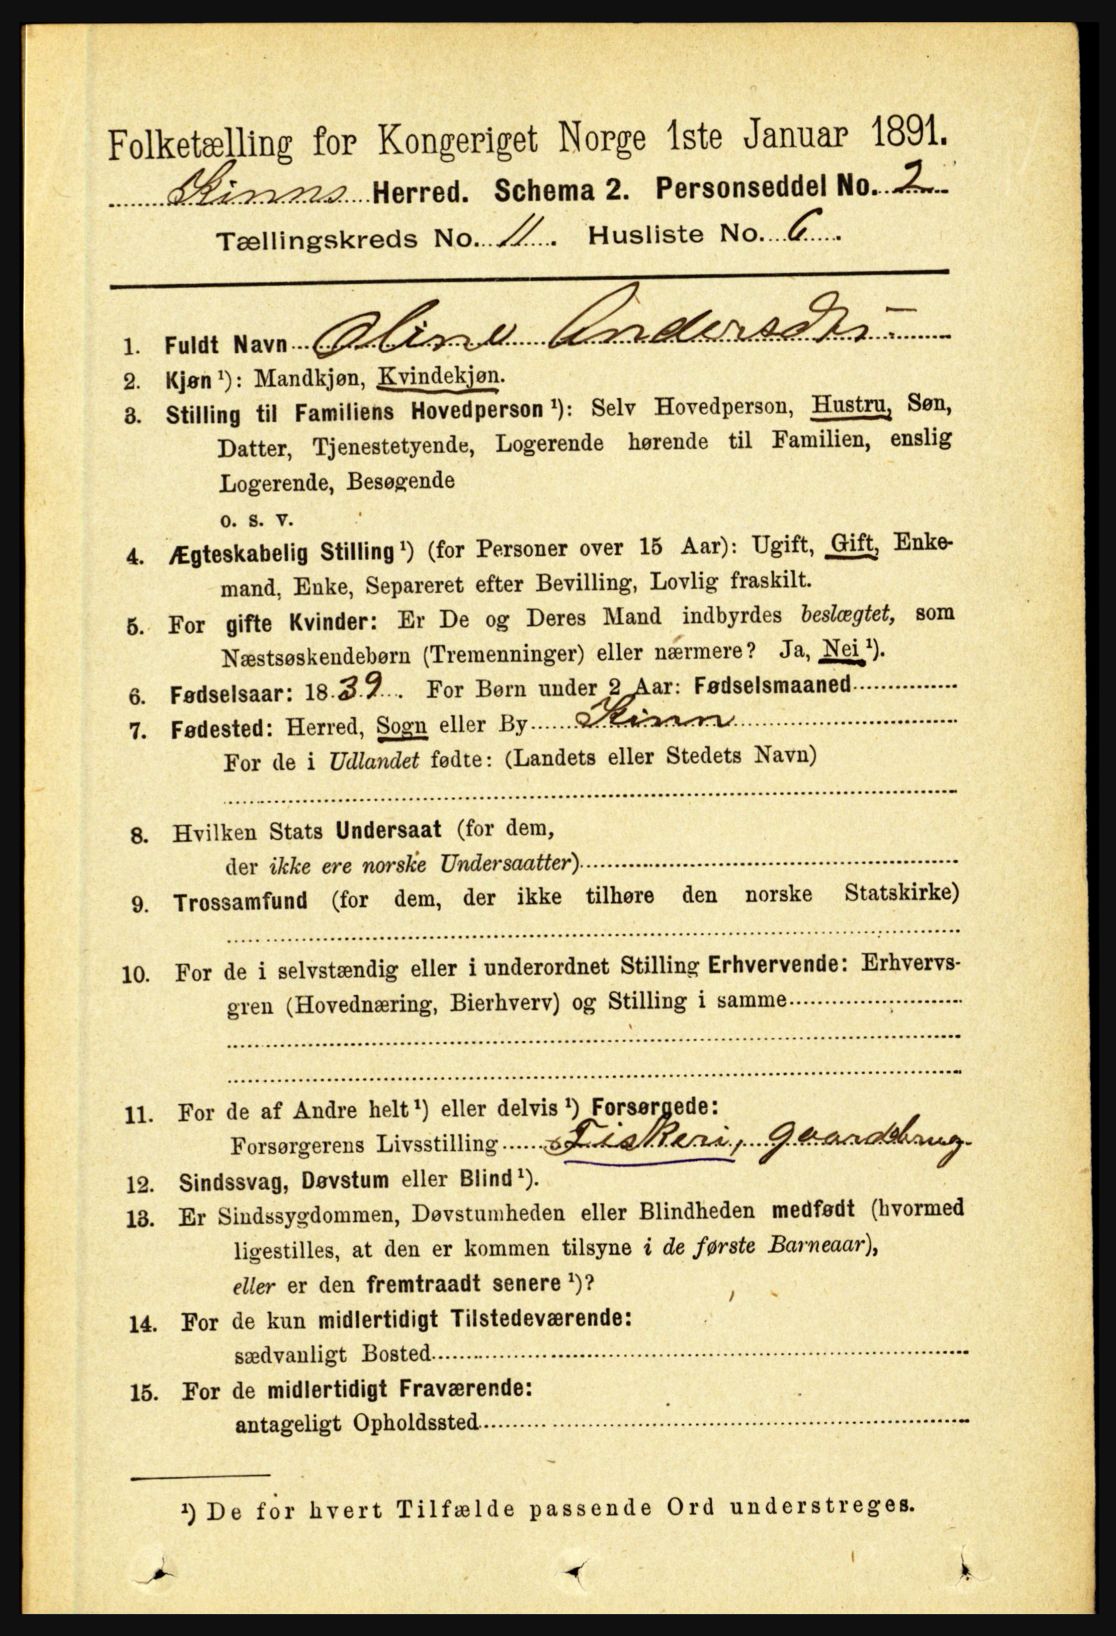 Folketælling for Kongeriget Norge 1ste Januar 1891.
Kinns Herred. Schema 2. Personseddel No. 2
Tællingskreds No. 11. Husliste No. 6.
1. Fuldt Navn Oline Andersdtr
2. Kjøn ¹): Mandkjøn, Kvindekjøn.
3. Stilling til Familiens Hovedperson ¹): Selv Hovedperson, Hustru, Søn,
Datter, Tjenestetyende, Logerende hørende til Familien, enslig
Logerende, Besøgende
o. s. v.
4. Ægteskabelig Stilling ¹) (for Personer over 15 Aar): Ugift, Gift, Enke-
mand, Enke, Separeret efter Bevilling, Lovlig fraskilt.
5. For gifte Kvinder: Er De og Deres Mand indbyrdes beslægtet, som
Næstsøskendebørn (Tremenninger) eller nærmere? Ja, Nei ¹).
6. Fødselsaar: 1839. For Børn under 2 Aar: Fødselsmaaned
7. Fødested: Herred, Sogn eller By Kinn
For de i Udlandet fødte: (Landets eller Stedets Navn)
8. Hvilken Stats Undersaat (for dem,
der ikke ere norske Undersaatter)
9. Trossamfund (for dem, der ikke tilhøre den norske Statskirke)
10. For de i selvstændig eller i underordnet Stilling Erhvervende: Erhvervs-
gren (Hovednæring, Bierhverv) og Stilling i samme
11. For de af Andre helt ¹) eller delvis ¹) Forsørgede:
Forsørgerens Livsstilling Fiskeri, gaardsbrug
12. Sindssvag, Døvstum eller Blind ¹).
13. Er Sindssygdommen, Døvstumheden eller Blindheden medfødt (hvormed
ligestilles, at den er kommen tilsyne i de første Barneaar),
eller er den fremtraadt senere ¹)?
14. For de kun midlertidigt Tilstedeværende:
sædvanligt Bosted
15. For de midlertidigt Fraværende:
antageligt Opholdssted
¹) De for hvert Tilfælde passende Ord understreges.